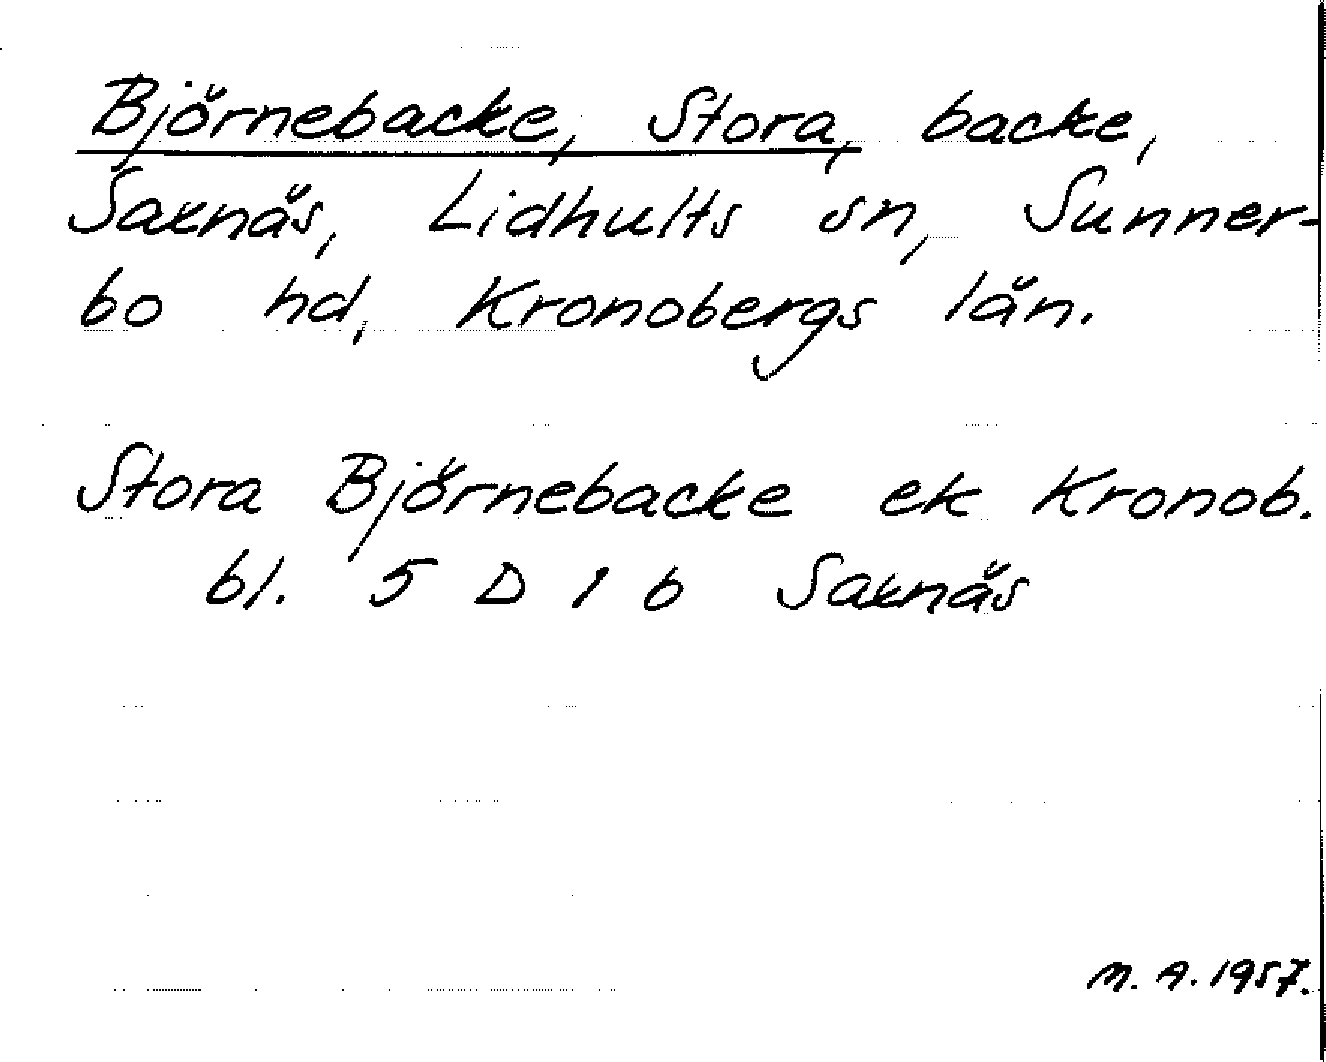 Björnebacke, Stora, backe,
Saxnäs, Lidhults sn, Sunner-
bo hd, Kronobergs län.
Stora Björnebacke ek Kronob.
bl. 5 D 1 b Saxnäs
M. A. 1957.